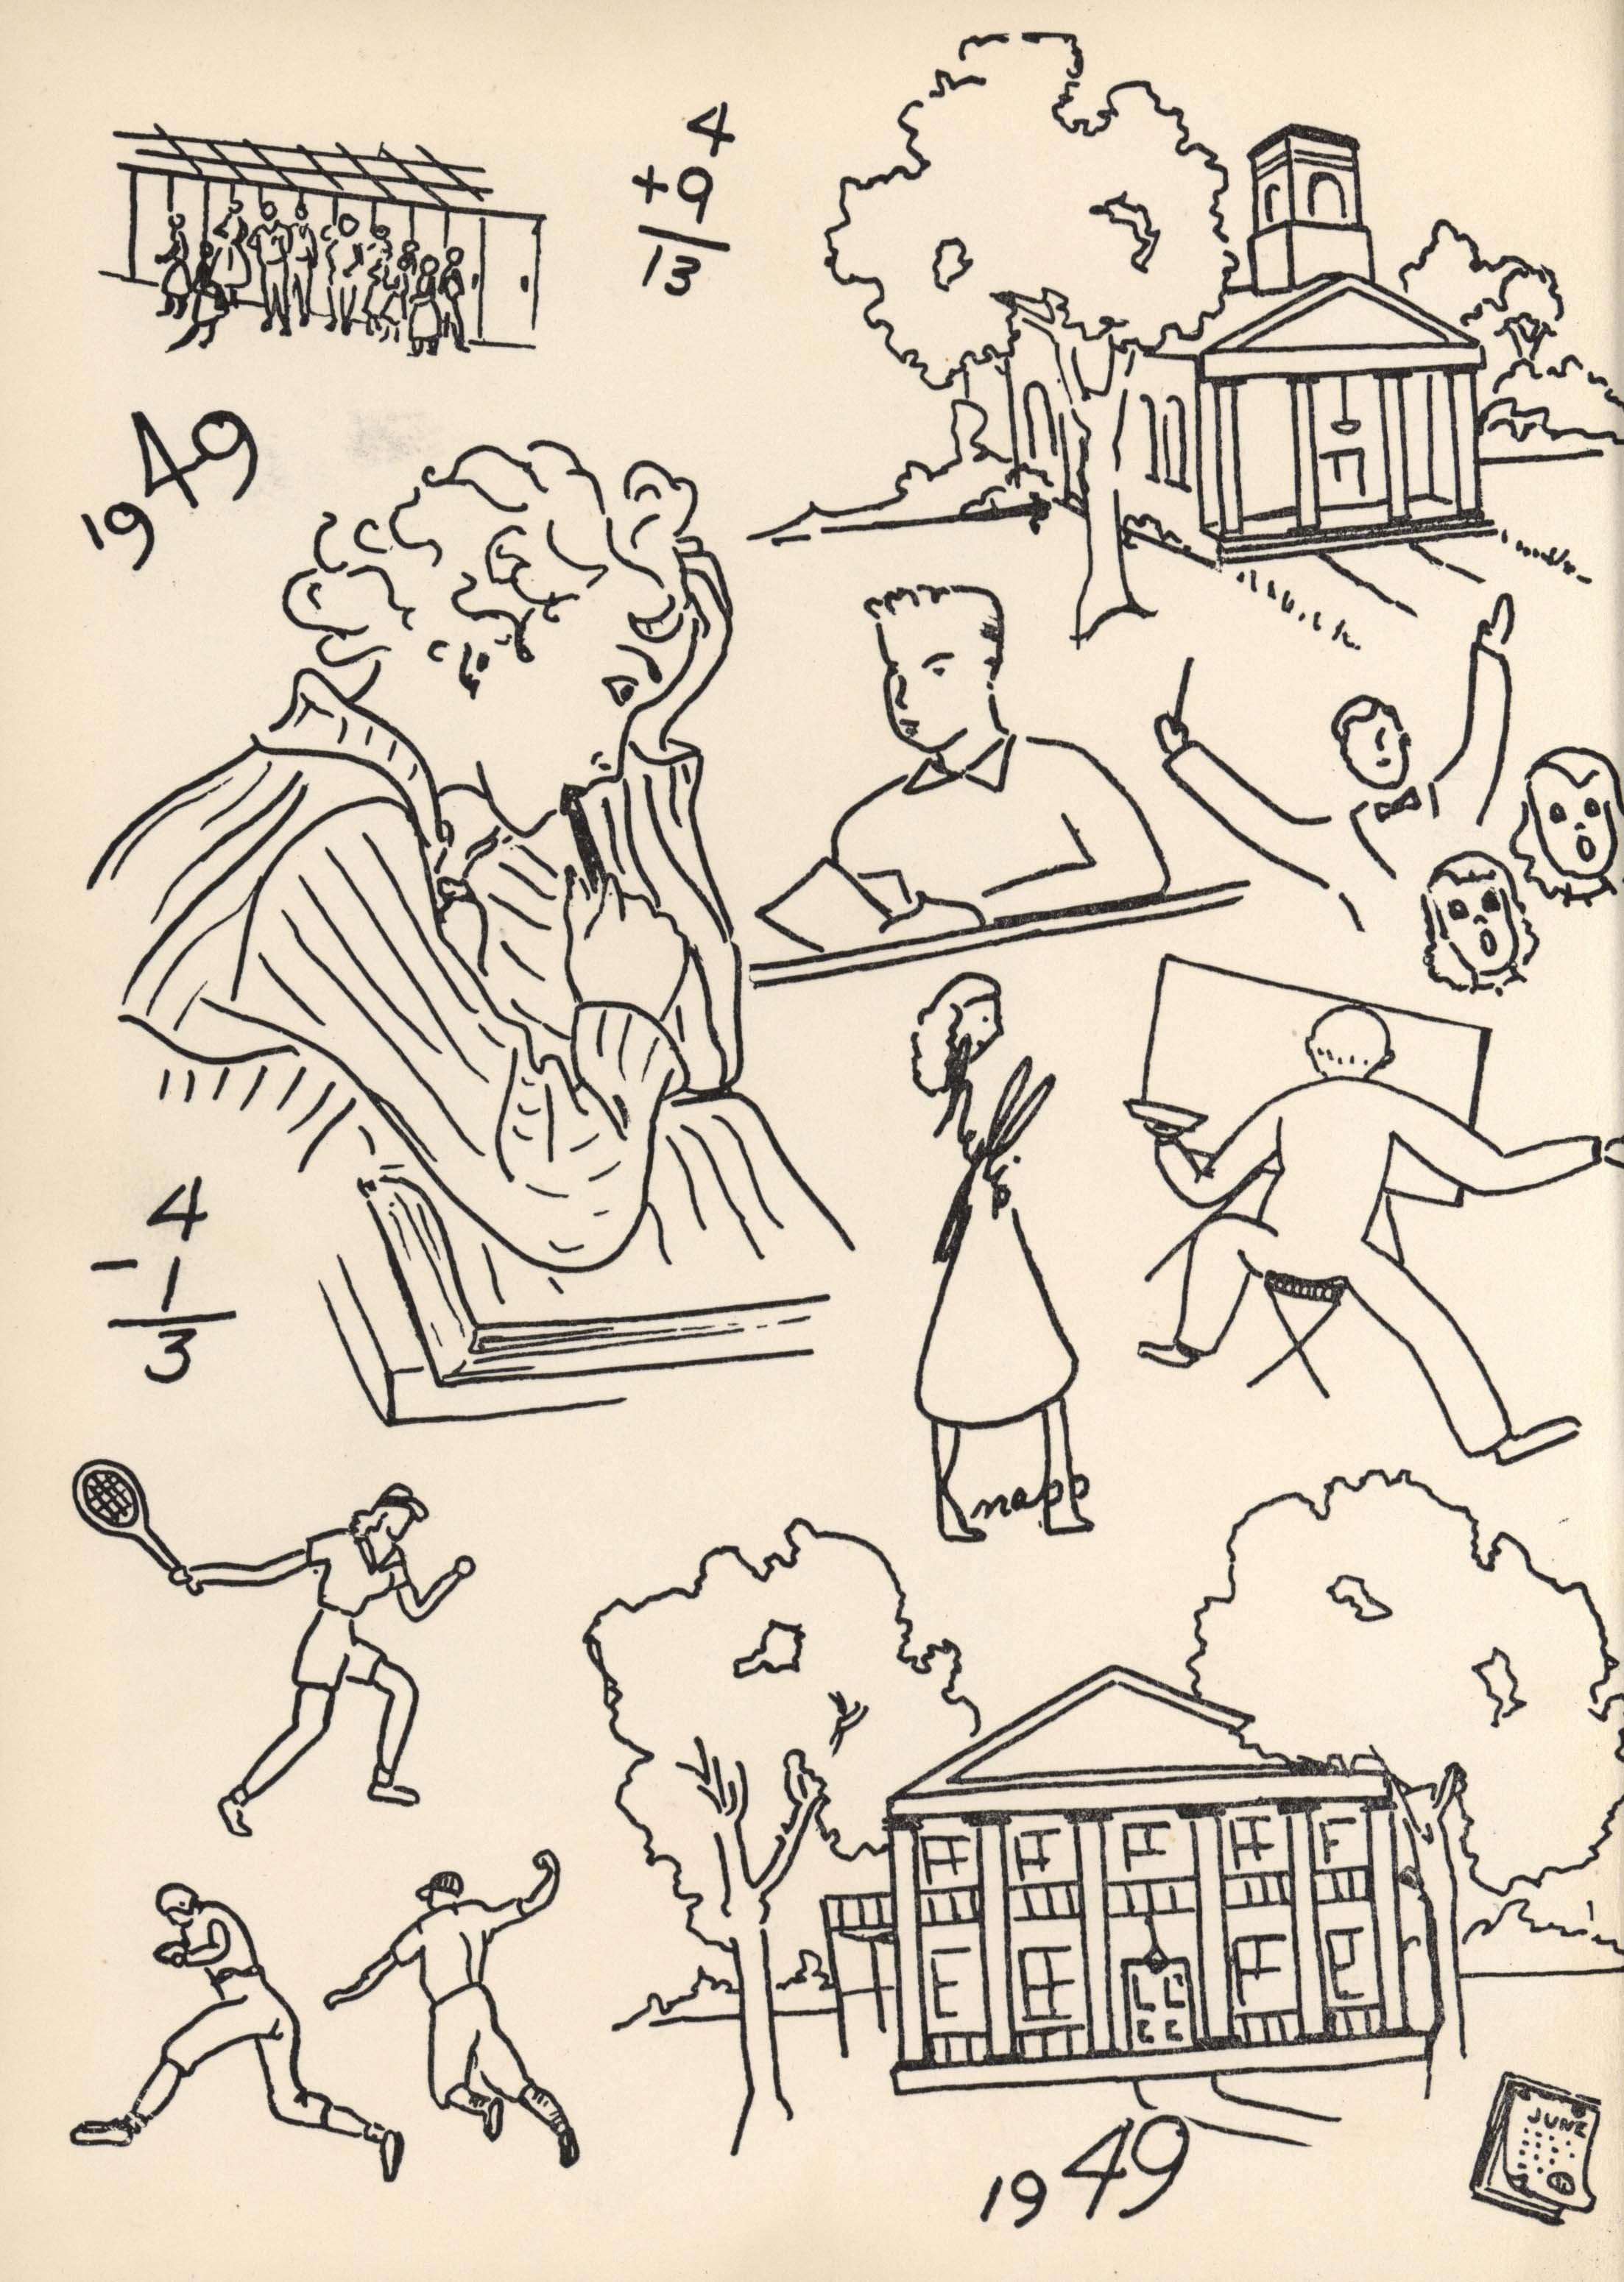 4
+9
13
1949
4
-1
3
Knapp
1949
JUNE